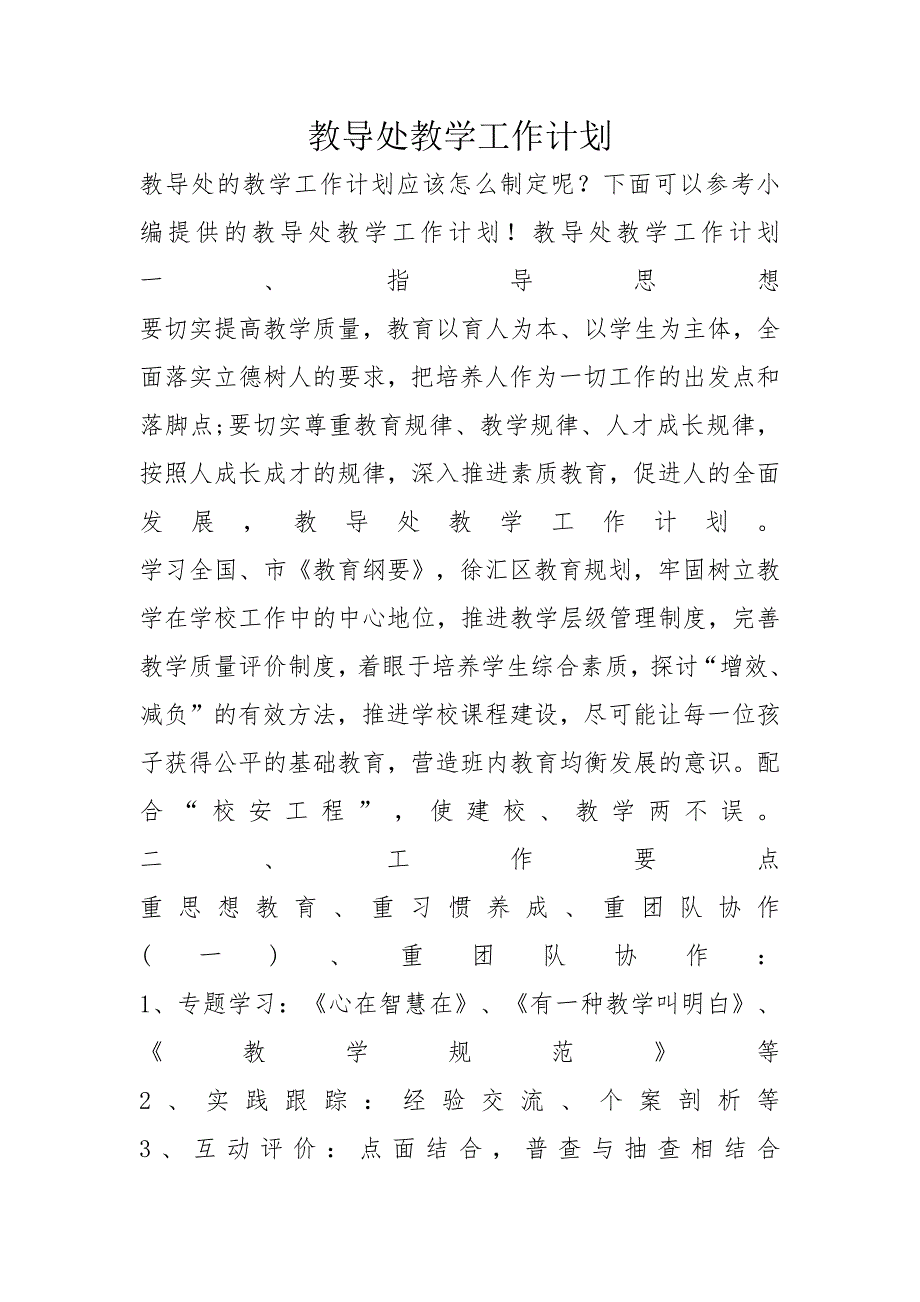 教导处教学工作计划
教导处的教学工作计划应该怎么制定呢？下面可以参考小
编提供的教导处教学工作计划！教导处教学工作计划
一、指导思想
要切实提高教学质量，教育以育人为本、以学生为主体，全
面落实立德树人的要求，把培养人作为一切工作的出发点和
落脚点;要切实尊重教育规律、教学规律、人才成长规律，
按照人成长成才的规律，深入推进素质教育，促进人的全面
发展，教导处教学工作计划。
学习全国、市《教育纲要》，徐汇区教育规划，牢固树立教
学在学校工作中的中心地位，推进教学层级管理制度，完善
教学质量评价制度，着眼于培养学生综合素质，探讨“增效、
减负”的有效方法，推进学校课程建设，尽可能让每一位孩
子获得公平的基础教育，营造班内教育均衡发展的意识。配
合“校安工程”，使建校、教学两不误。
二、工作要点
重思想教育、重习惯养成、重团队协作
(一)、重团队协作：
1、专题学习：《心在智慧在》、《有一种教学叫明白》、
《教学规范》等
2、实践跟踪：经验交流、个案剖析等
3、互动评价：点面结合，普查与抽查相结合